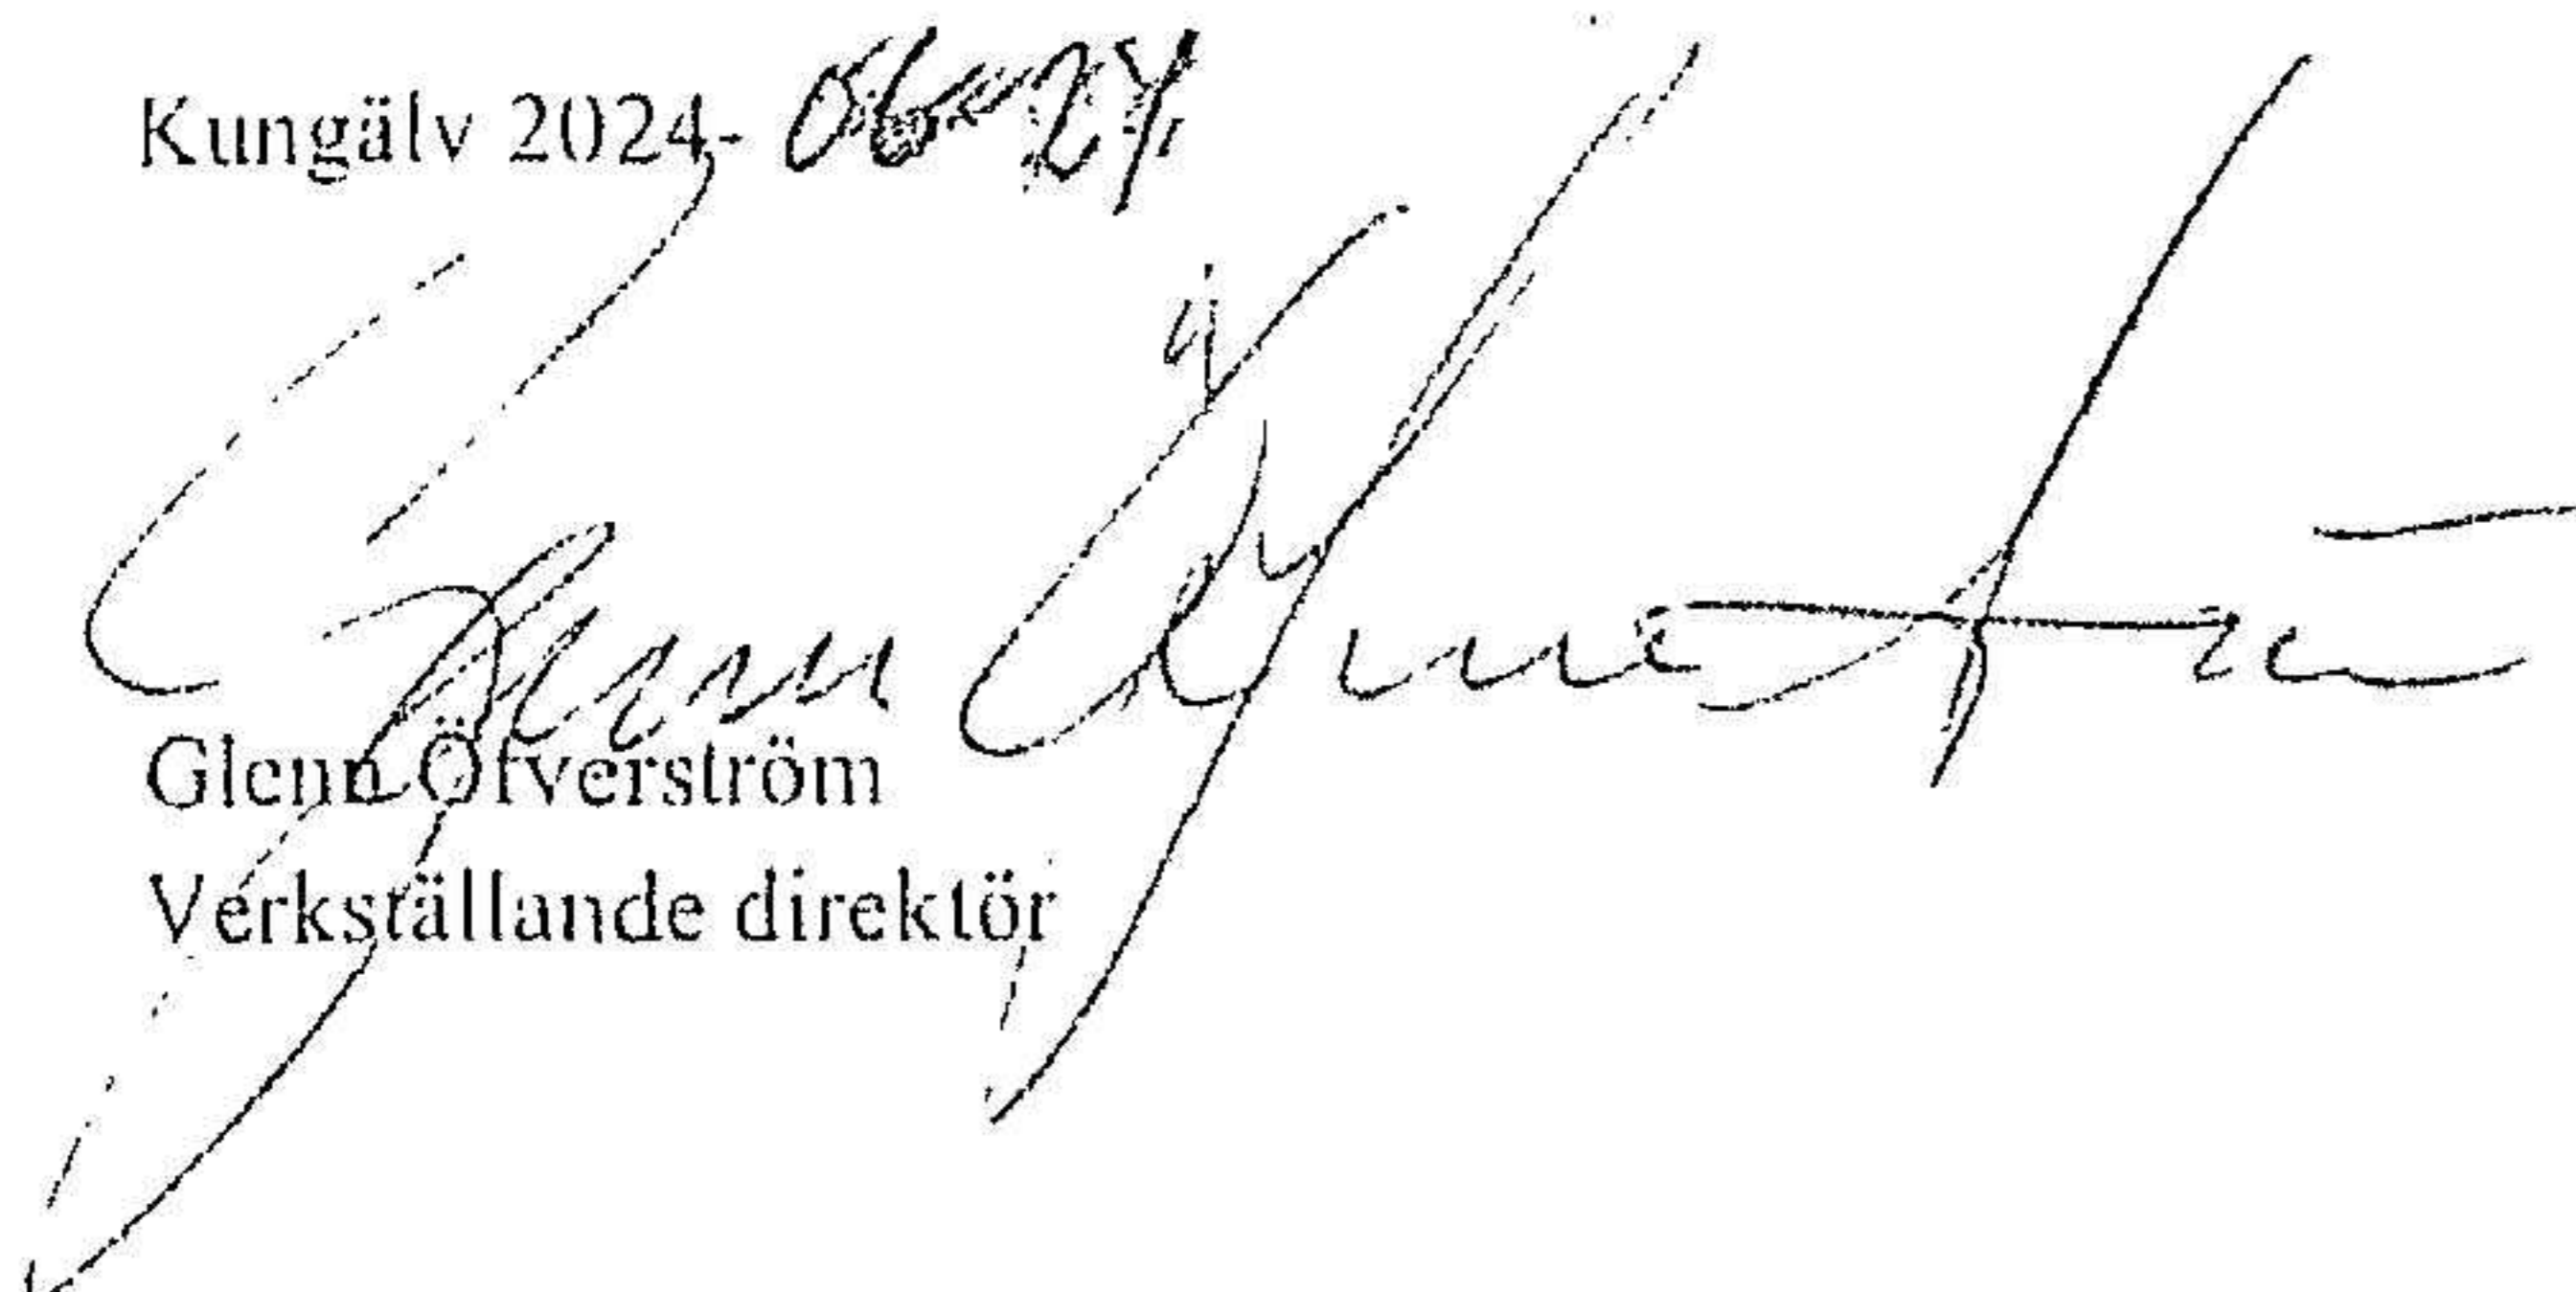 Kungälv 2024-06-24
Glenn Öfverström
Glenn Öfverström
Verkställande direktör